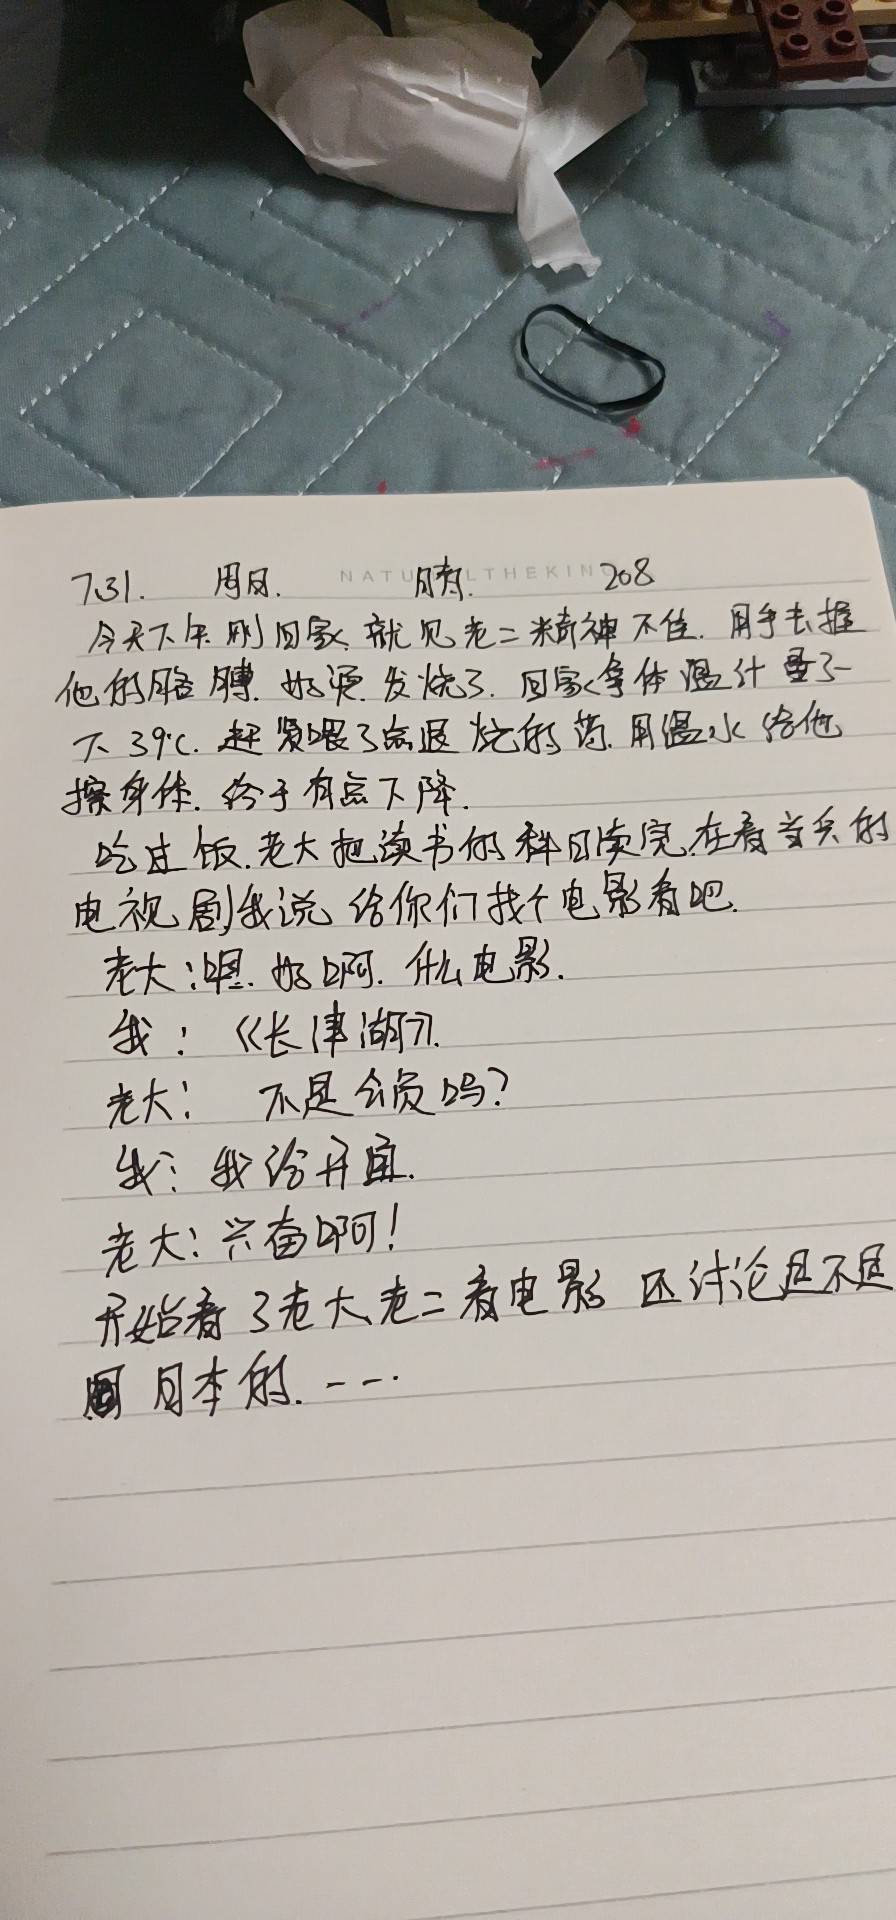 7.31. 周日. NATURALTHEKING 晴. 208
今天下午刚回家, 就见老二精神不佳. 用手去握
他的胳膊. 好烫. 发烧了. 回家拿体温计量了一
下 39℃. 赶紧喂了点退烧的药. 用温水给他
擦身体. 终于有点下降.
吃过饭. 老大把读书的科目读完. 在看当兵的
电视剧我说 给你们找个电影看吧.
老大: 嗯. 好啊. 什么电影.
我: 《长津湖》.
老大: 不是会员吗?
我: 我给开
老大: 兴奋啊!
开始看了老大、老二看电影 还讨论是不是
日本的. ---.